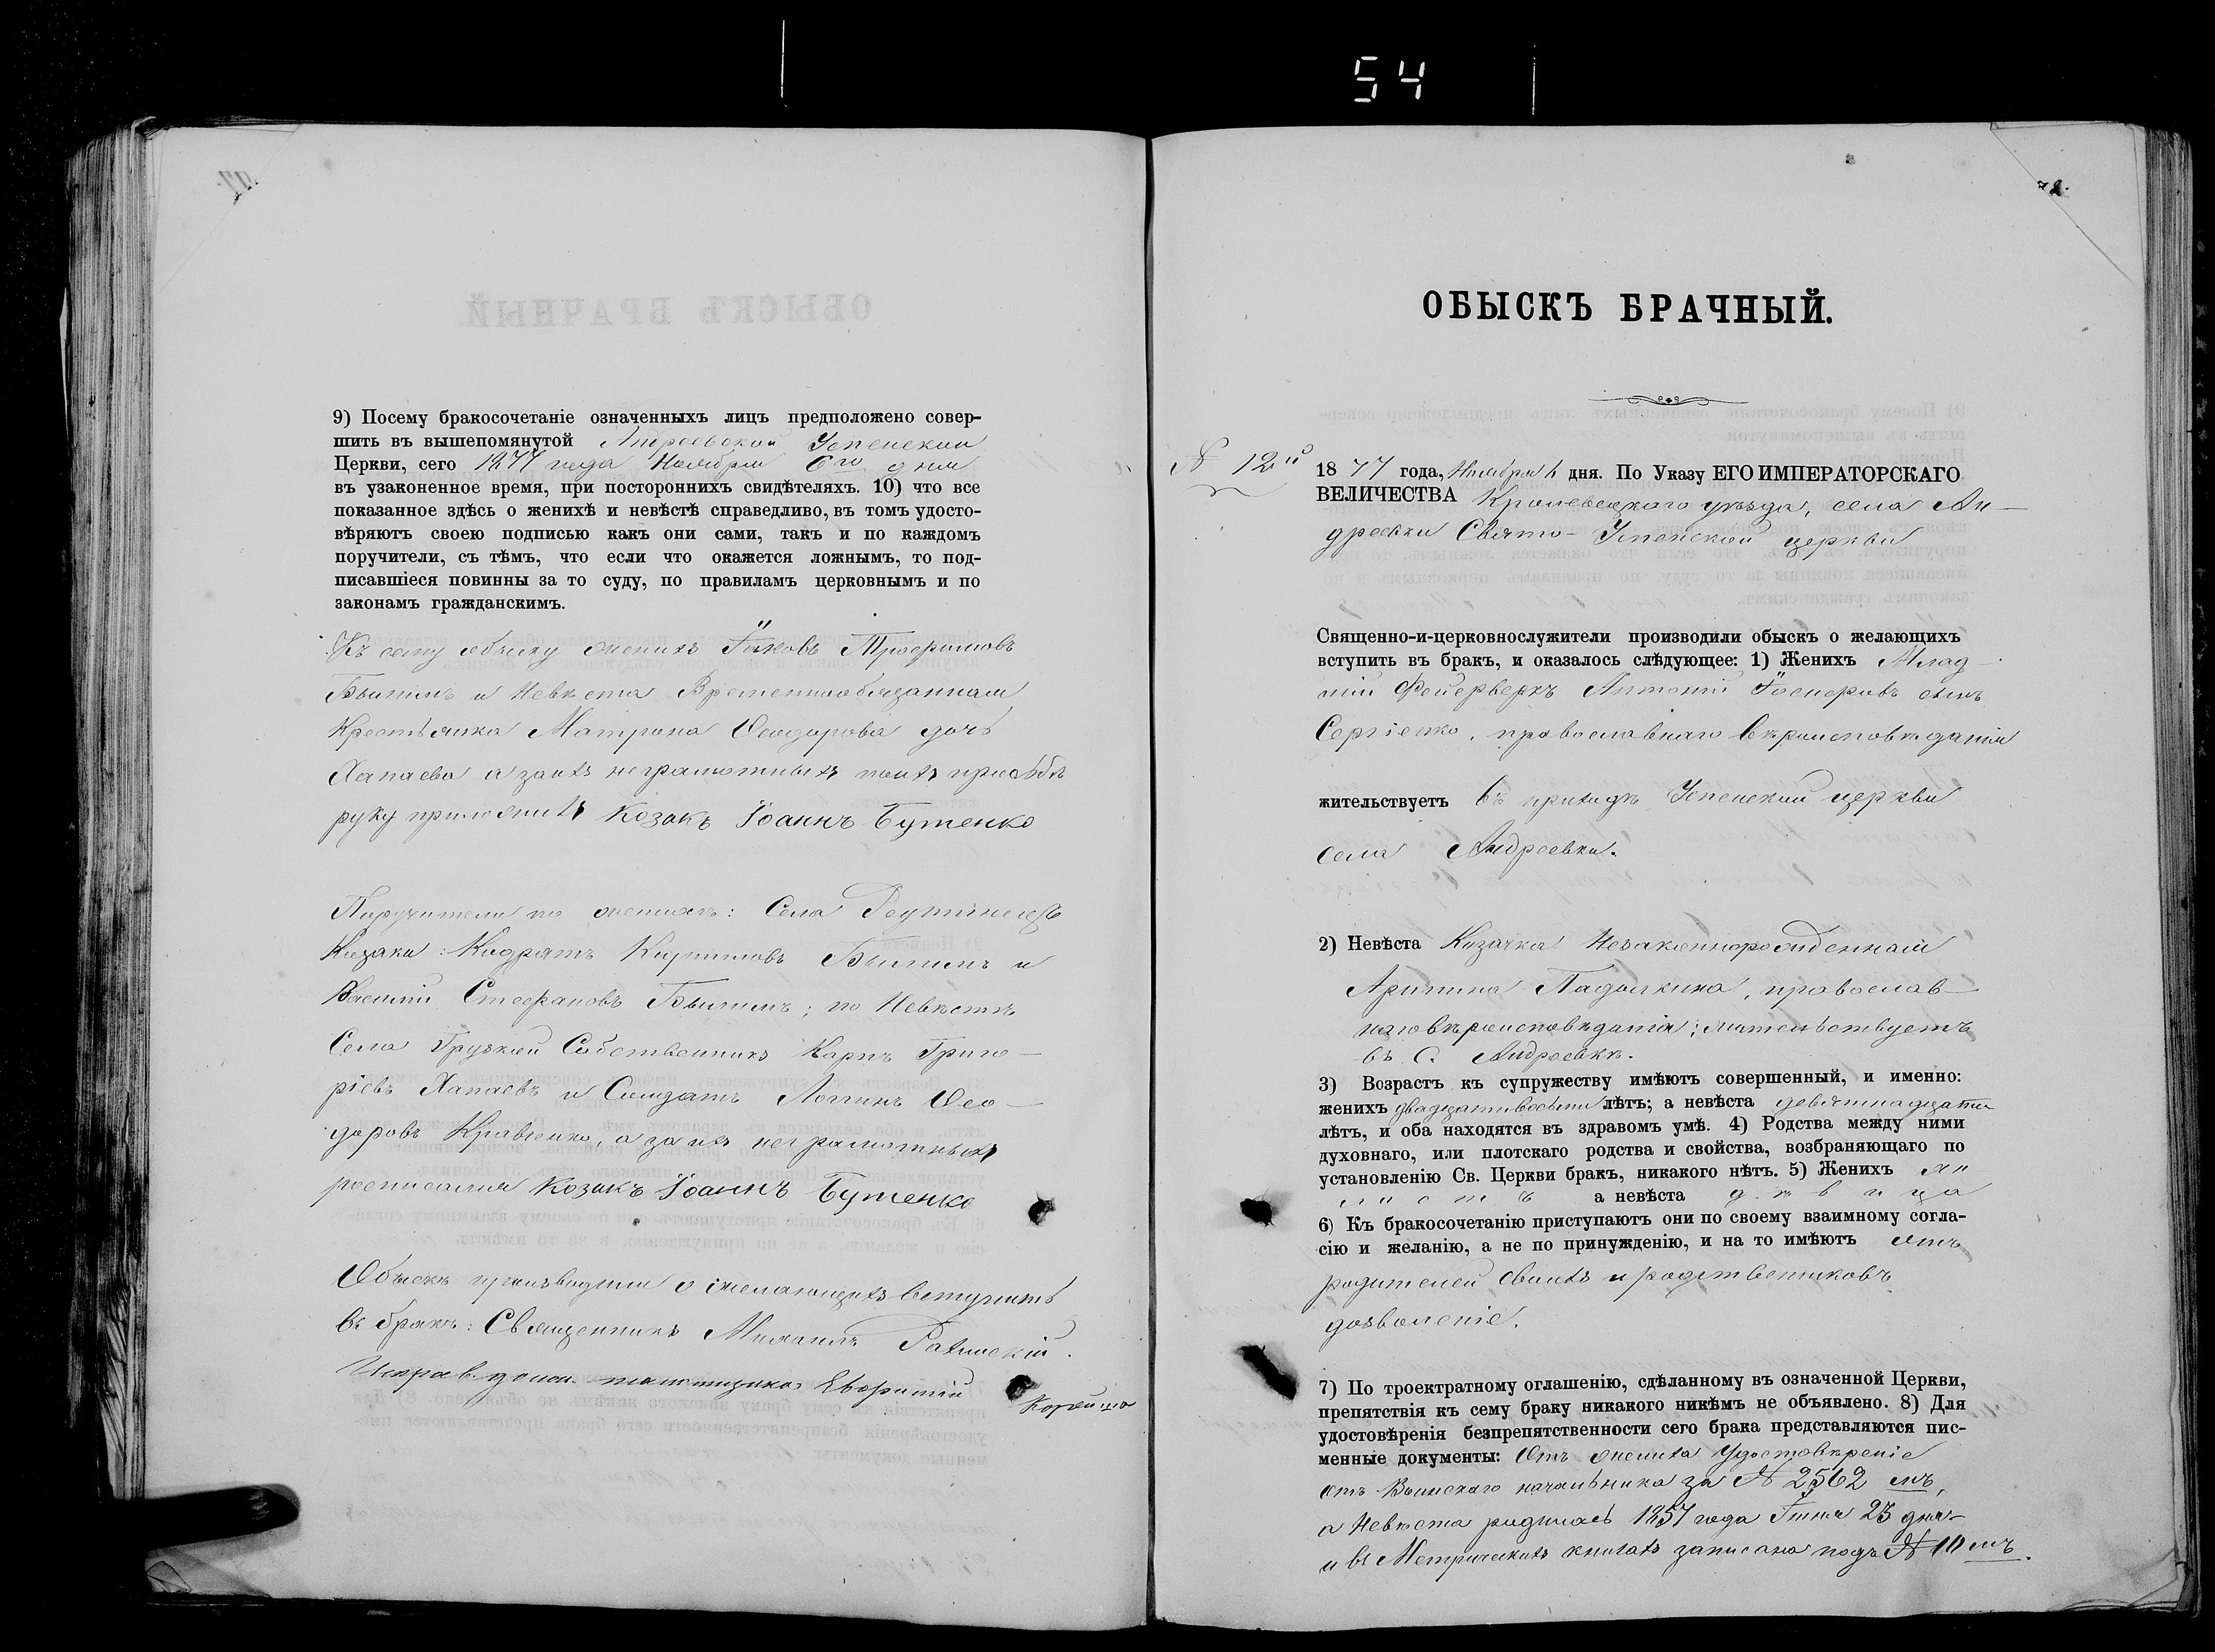 54
ОБЫСКЪ БРАЧНЫЙ.
9) Посему бракосочетаніе означенныхъ лицъ предположено совер-
шить въ вышепомянутой Андреевской Успенской
Церкви, сего 1877 года Ноября 6го дня
въ узаконенное время, при постороннихъ свидѣтеляхъ. 10) что все
показанное здѣсь о женихѣ и невѣстѣ справедливо, въ томъ удосто-
вѣряютъ своею подписью какъ они сами, такъ и по каждомъ
поручители, съ тѣмъ, что если что окажется ложнымъ, то под-
писавшіеся повинны за то суду, по правиламъ церковнымъ и по
законамъ гражданскимъ.
Къ сему обыску женихъ Іаковъ Трофимовъ
и Невѣста Временнообязанная
Крестьянка Матрона Ѳеодорова дочь
Хапаева а за ихъ неграмотныхъ
руку приложилъ Козакъ Іоаннъ Бутенко
Поручители по женихѣ: Села
Козаки: Кириловъ и
Василій Стефановъ ; по Невѣстѣ
Села Грузкой Собственникъ Карпъ Григо-
ріевъ Хапаевъ и Солдатъ Логинъ Ѳео-
доровъ Кравченко, а за ихъ неграмотныхъ
росписался Козакъ Іоаннъ Бутенко
Обыскъ производили о желающихъ вступить
въ бракъ: Священникъ Михаилъ
Исправ. долж.
№ 12й
1877 года, Ноября 6 дня. По Указу ЕГО ИМПЕРАТОРСКАГО
ВЕЛИЧЕСТВА Кролевецкаго уѣзда, села Ан-
дреевки Свято-Успенской церкви
Священно-и-церковнослужители производили обыскъ о желающихъ
вступить въ бракъ, и оказалось слѣдующее: 1) Женихъ Млад-
шій Фейерверкъ Антоній сынъ
Сергіенко, православнаго вѣроисповѣданія
жительствуетъ въ приходѣ Успенской церкви
села Андреевки.
2) Невѣста Козачка Незаконнорожденная
Арипина , православ-
наго вѣроисповѣданія; жительствуетъ
въ с. Андреевкѣ.
3) Возрастъ къ супружеству имѣютъ совершенный, и именно:
женихъ двадцативосьми лѣтъ; а невѣста девятнадцати
лѣтъ, и оба находятся въ здравомъ умѣ. 4) Родства между ними
духовнаго, или плотскаго родства и свойства, возбраняющаго по
установленію Св. Церкви бракъ, никакого нѣтъ. 5) Женихъ хо
лостъ а невѣста дѣвица
6) Къ бракосочетанію приступаютъ они по своему взаимному согла-
сію и желанію, а не по принужденію, и на то имѣютъ отъ
родителей своихъ и родственниковъ
дозволеніе.
7) По троекратному оглашенію, сдѣланному въ означенной Церкви,
препятствія къ сему браку никакого никѣмъ не объявлено. 8) Для
удостовѣренія безпрепятственности сего брака представляются пис-
менные документы: Отъ жениха Удостовѣреніе
отъ Воинскаго начальника за № 2562 мъ,
а Невѣста родилась 1857 года 23 дня
и въ Метрическихъ книгахъ записана подъ № 10 мъ.